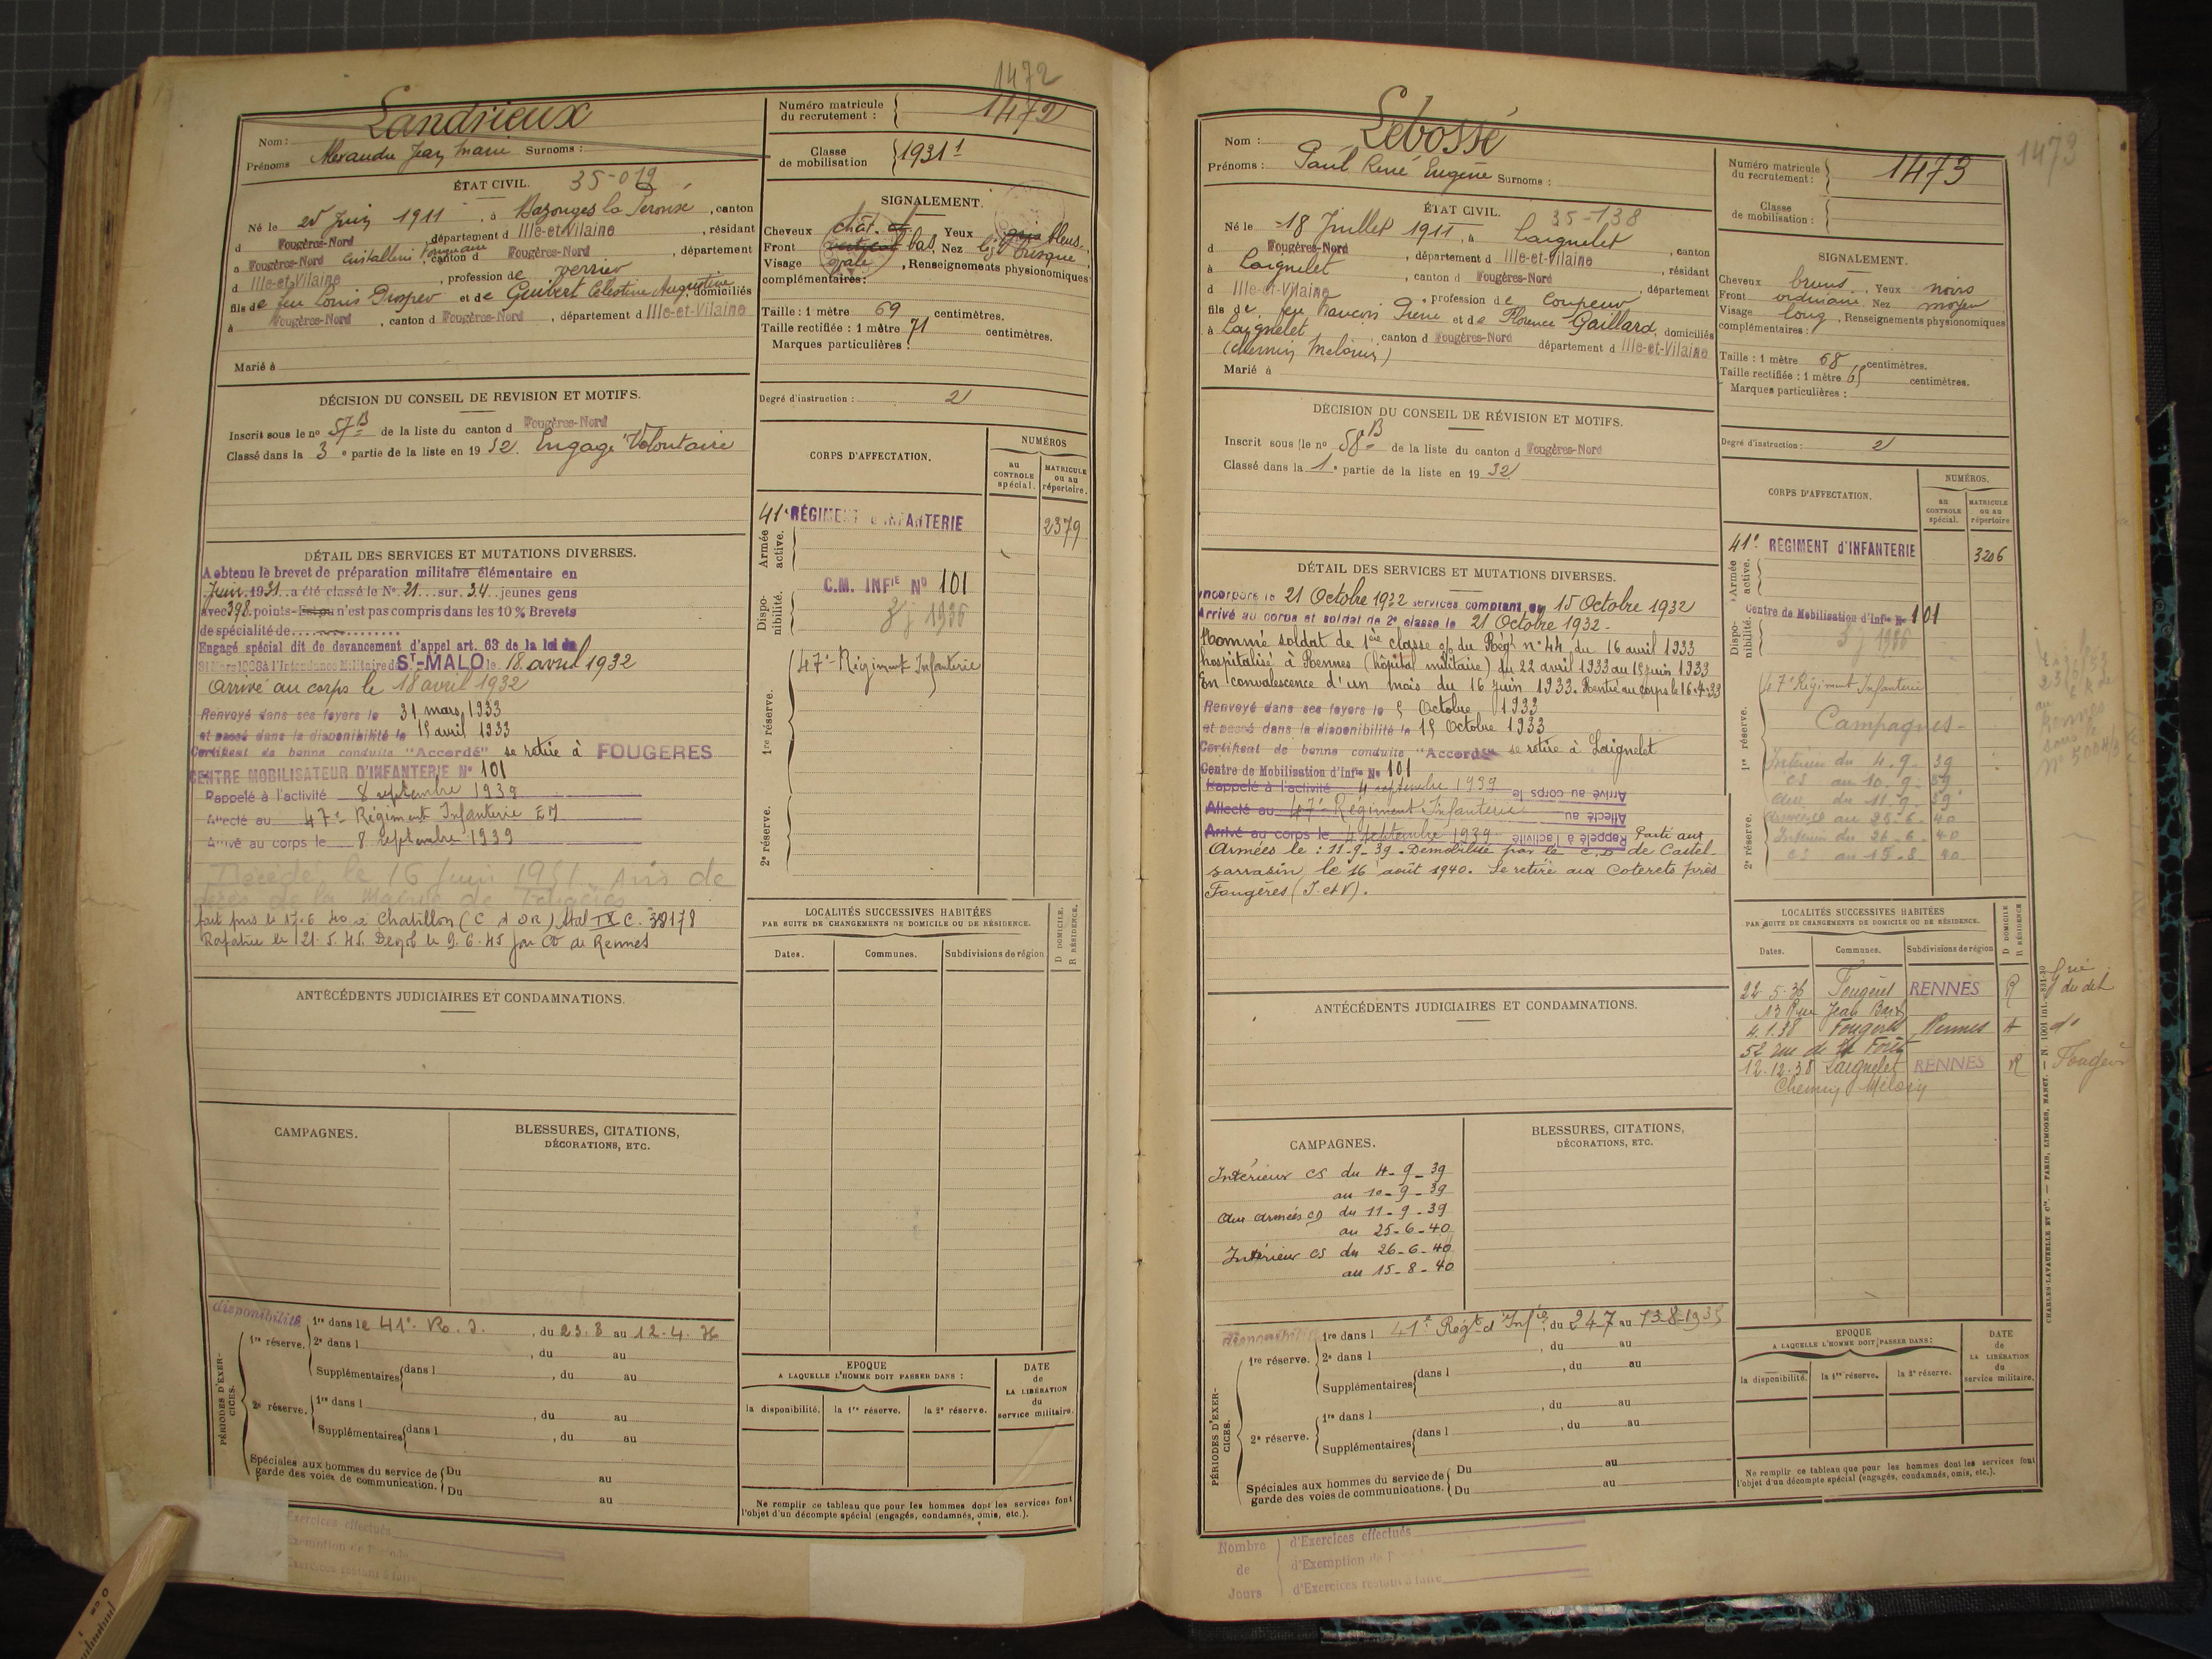 1472
Landrieux
Nom :
Prénoms Alexandre Jean Marie Surnoms :
Numéro matricule du recrutement : 1472
Classe de mobilisation 1931
ÉTAT CIVIL. 35-019
Né le 25 Juin 1911, à Bazouges la Pérouse, canton
d Fougères-Nord, département d Ille-et-Vilaine, résidant
à Fougères-Nord Cristallerie, canton d Fougères-Nord, département
d Ille-et-Vilaine, profession de verrier
fils de feu Louis Prosper et de Guibert Célestine Augustine, domiciliés
à Fougères-Nord, canton d Fougères-Nord, département d Ille-et-Vilaine
Marié à
SIGNALEMENT.
Cheveux chât. Yeux bleus
Front bas, Nez busqué
Visage ovale, Renseignements physionomiques
complémentaires :
Taille : 1 mètre 69 centimètres.
Taille rectifiée : 1 mètre 71 centimètres.
Marques particulières :
Degré d'instruction : 2
DÉCISION DU CONSEIL DE REVISION ET MOTIFS.
Inscrit sous le no 57 B de la liste du canton d Fougères-Nord
Classé dans la 3e partie de la liste en 1932. Engagé Volontaire
CORPS D'AFFECTATION.
NUMÉROS
au CONTROLE spécial.
MATRICULE ou au répertoire.
Armée active.
41e RÉGIMENT d'INFANTERIE 2379
Disponibilité.
C.M. INFIE No 101
1re réserve.
47e Régiment Infanterie
2e réserve.
DÉTAIL DES SERVICES ET MUTATIONS DIVERSES.
A obtenu le brevet de préparation militaire élémentaire en
Juin 1931 a été classé le No 21 sur 34 jeunes gens
avec 398 points - Est ou n'est pas compris dans les 10 % Brevets
de spécialité de
Engagé spécial dit de devancement d'appel art. 63 de la loi du
31 Mars 1928 à l'Intendance Militaire de ST-MALO le 18 avril 1932
Arrivé au corps le 18 avril 1932
Renvoyé dans ses foyers le 31 mars 1933
et passé dans la disponibilité le 15 avril 1933
Certificat de bonne conduite "Accordé" se retire à FOUGERES
CENTRE MOBILISATEUR D'INFANTERIE No 101
Rappelé à l'activité 8 septembre 1939
Affecté au 47e Régiment Infanterie
Arrivé au corps le 8 septembre 1939
Décédé le 16 Juin 1951 avis de
décès de la Mairie de Fougères
fait pris le 17.6.40 à Chatillon (C d OR) Stal IX C. 38178
Rapatrié le 21.5.45. Demob le 9.6.45 par CD de Rennes
ANTÉCÉDENTS JUDICIAIRES ET CONDAMNATIONS.
LOCALITÉS SUCCESSIVES HABITÉES
PAR SUITE DE CHANGEMENTS DE DOMICILE OU DE RÉSIDENCE.
Dates. Communes. Subdivisions de région
D DOMICILE. R RÉSIDENCE.
CAMPAGNES.
BLESSURES, CITATIONS, DÉCORATIONS, ETC.
disponibilité
PÉRIODES D'EXERCICES.
1re réserve.
1re dans le 41e R.I., du 23.3 au 12.4.36
2e dans l , du au
Supplémentaires dans l , du au
2e réserve.
1re dans l , du au
Supplémentaires dans l , du au
Spéciales aux hommes du service de garde des voies de communication.
Du au
Du au
EPOQUE A LAQUELLE L'HOMME DOIT PASSER DANS :
la disponibilité. la 1re réserve. la 2e réserve.
DATE de LA LIBÉRATION du service militaire.
Ne remplir ce tableau que pour les hommes dont les services font
l'objet d'un décompte spécial (engagés, condamnés, omis, etc.).
Exercices effectués
1473
Lebossé
Nom :
Prénoms : Paul René Eugène Surnoms :
Numéro matricule du recrutement : 1473
Classe de mobilisation :
ÉTAT CIVIL. 35-138
Né le 18 Juillet 1911, à Laignelet, canton
d Fougères-Nord, département d Ille-et-Vilaine, résidant
à Laignelet, canton d Fougères-Nord, département
d Ille-et-Vilaine, profession de coupeur
fils de feu François Pierre et de Florence Gaillard, domiciliés
à Laignelet, canton d Fougères-Nord département d Ille-et-Vilaine
Marié à
SIGNALEMENT.
Cheveux bruns, Yeux noirs
Front ordinaire Nez moyen
Visage long, Renseignements physionomiques
complémentaires :
Taille : 1 mètre 68 centimètres.
Taille rectifiée : 1 mètre centimètres.
Marques particulières :
Degré d'instruction : 2
DÉCISION DU CONSEIL DE RÉVISION ET MOTIFS.
Inscrit sous le no 58 B de la liste du canton d Fougères-Nord
Classé dans la 1e partie de la liste en 1932
CORPS D'AFFECTATION.
NUMÉROS.
au CONTROLE spécial.
MATRICULE ou au répertoire
Armée active.
41e RÉGIMENT d'INFANTERIE 3206
Disponibilité.
Centre de Mobilisation d'Infie No 101
1re réserve.
47e Régiment Infanterie
Campagnes -
Intérieur du 4.9.39
CS au 10.9.39
du 11.9.39
au 25.6.40
Intérieur du 26.6.40
CS au 15.8.40
2e réserve.
DÉTAIL DES SERVICES ET MUTATIONS DIVERSES.
Incorporé le 21 Octobre 1932 services comptant du 15 Octobre 1932
Arrivé au corps et soldat de 2e classe le 21 Octobre 1932.
Nommé soldat de 1ère classe o/ du Régt no 44 du 16 avril 1933
hospitalisé à Rennes (hôpital militaire) du 22 avril 1933 au 15 juin 1933
En convalescence d'un mois du 16 juin 1933. Rentré au corps le 16
Renvoyé dans ses foyers le 5 Octobre 1933
et passé dans la disponibilité le 15 Octobre 1933
Certificat de bonne conduite "Accordé" se retire à Laignelet
Centre de Mobilisation d'Infie No 101
Rappelé à l'activité 4 septembre 1939 Arrivé au corps le
Affecté au 47e Régiment Infanterie Affecté au
Arrivé au corps le 4 septembre 1939 Rappelé à l'activité Parti aux
Armées le : 11-9-39. Démobilisé par le C.D de Castel
sarrasin le 16 août 1940. Se retire aux Coterets près
Fougères (I. et V).
ANTÉCÉDENTS JUDICIAIRES ET CONDAMNATIONS.
LOCALITÉS SUCCESSIVES HABITÉES
PAR SUITE DE CHANGEMENTS DE DOMICILE OU DE RÉSIDENCE.
Dates. Communes. Subdivisions de région
D DOMICILE R RÉSIDENCE
22.5.36 Fougères RENNES R
13 Rue Jean Bart
4.1.38 Fougères Rennes
52 rue de la Forêt
12.12.38 Laignelet RENNES R Fougères
CAMPAGNES.
Intérieur CS du 4-9-39
au 10-9-39
Aux armées CS du 11-9-39
au 25-6-40
Intérieur CS du 26-6-40
au 15-8-40
BLESSURES, CITATIONS, DÉCORATIONS, ETC.
disponibilité
PÉRIODES D'EXERCICES.
1re réserve.
1re dans l 41e Régt d'Infie, du 24-7 au 13-8-1935
2e dans l , du au
Supplémentaires dans l , du au
2e réserve.
1re dans l , du au
Supplémentaires dans l , du au
Spéciales aux hommes du service de garde des voies de communications.
Du au
Du au
EPOQUE A LAQUELLE L'HOMME DOIT PASSER DANS :
la disponibilité. la 1re réserve. la 2e réserve.
DATE de LA LIBÉRATION du service militaire.
Ne remplir ce tableau que pour les hommes dont les services font
l'objet d'un décompte spécial (engagés, condamnés, omis, etc.).
CHARLES-LAVAUZELLE ET Cie. — PARIS, LIMOGES, NANCY.
Nombre de Jours
d'Exercices effectués
d'Exemption de
d'Exercices restant à faire